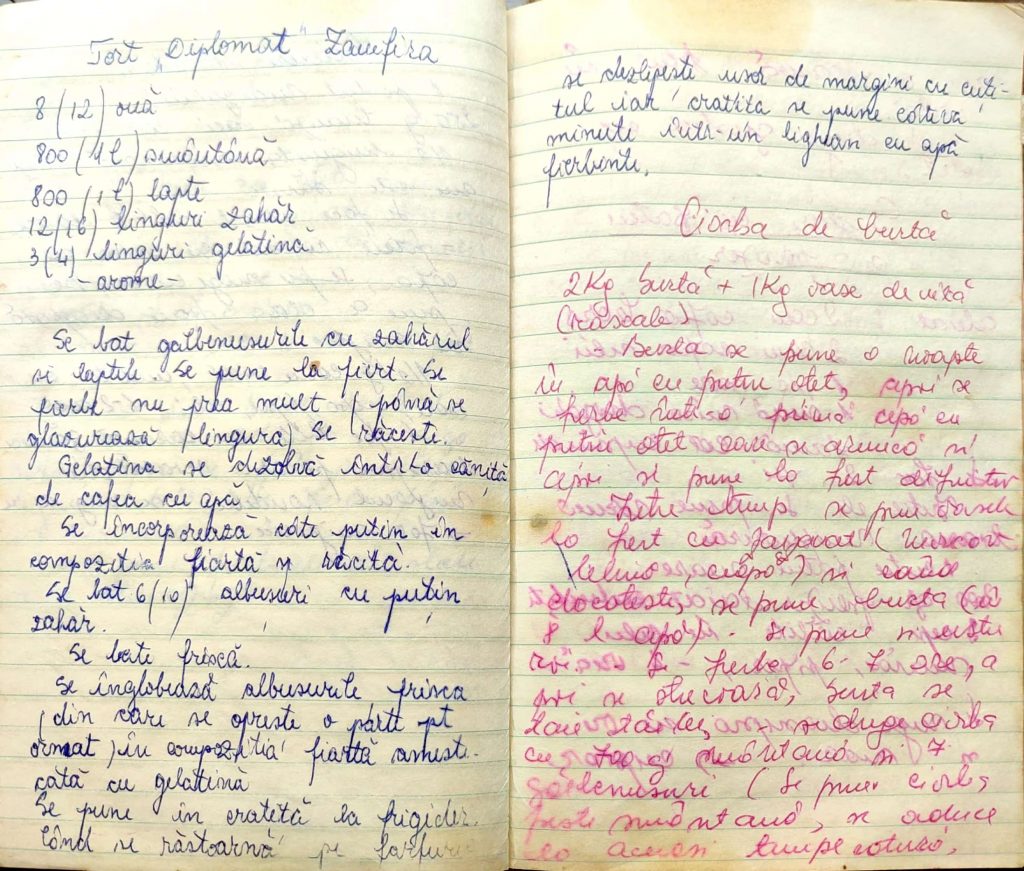 Tort „Diplomat" Zamfira
8 (12) ouă
800 (1 l) smântână
800 (1 l) lapte
12 (16) linguri zahăr
3 (4) linguri gelatină
- arome -
Se bat galbenusurile cu zahărul
si laptele Se pune la fiert Se
fierbe nu prea mult (până se
glazurează lingura) Se răceste.
Gelatina se dizolvă într-o căniță
de cafea cu apă
Se încorporează câte putin în
compozitia fiartă și răcită.
Se bat 6 (10) albusuri cu puțin
zahăr.
Se bate friscă.
Se înglobează albusurile frisca
(din care se opreste o parte pt
ornat) în compoziția fiartă ameste-
cată cu gelatină
Se pune în cratită la frigider.
Când se răstoarnă pe farfurie
se dezlipeste usor de margini cu cuti-
tul iar cratita se pune câteva
minute într-un lighean cu apă
fierbinte.
Ciorba de burtă
2 Kg burtă + 1 Kg oase de vită
(rasoale)
Burta se pune o noapte
în apă cu putin otet, apoi se
fierbe într-o primă apă cu
putin otet care se aruncă si
apoi se pune la fiert definitiv
Între timp se pun oasele
la fiert cu zarzavat (morcovi
telina, ceapă) si cand
clocoteste, se pune burta (la
8 l apă). Se pune si peste
- fierbe 6-7 ore, a
poi se strecoară, burta se
taie tăitei, se drege ciorba
cu 700 g smântână si 7
gălbenusuri (Se pune ciorbă
peste smântână, se aduce
la aceeasi temperatură,